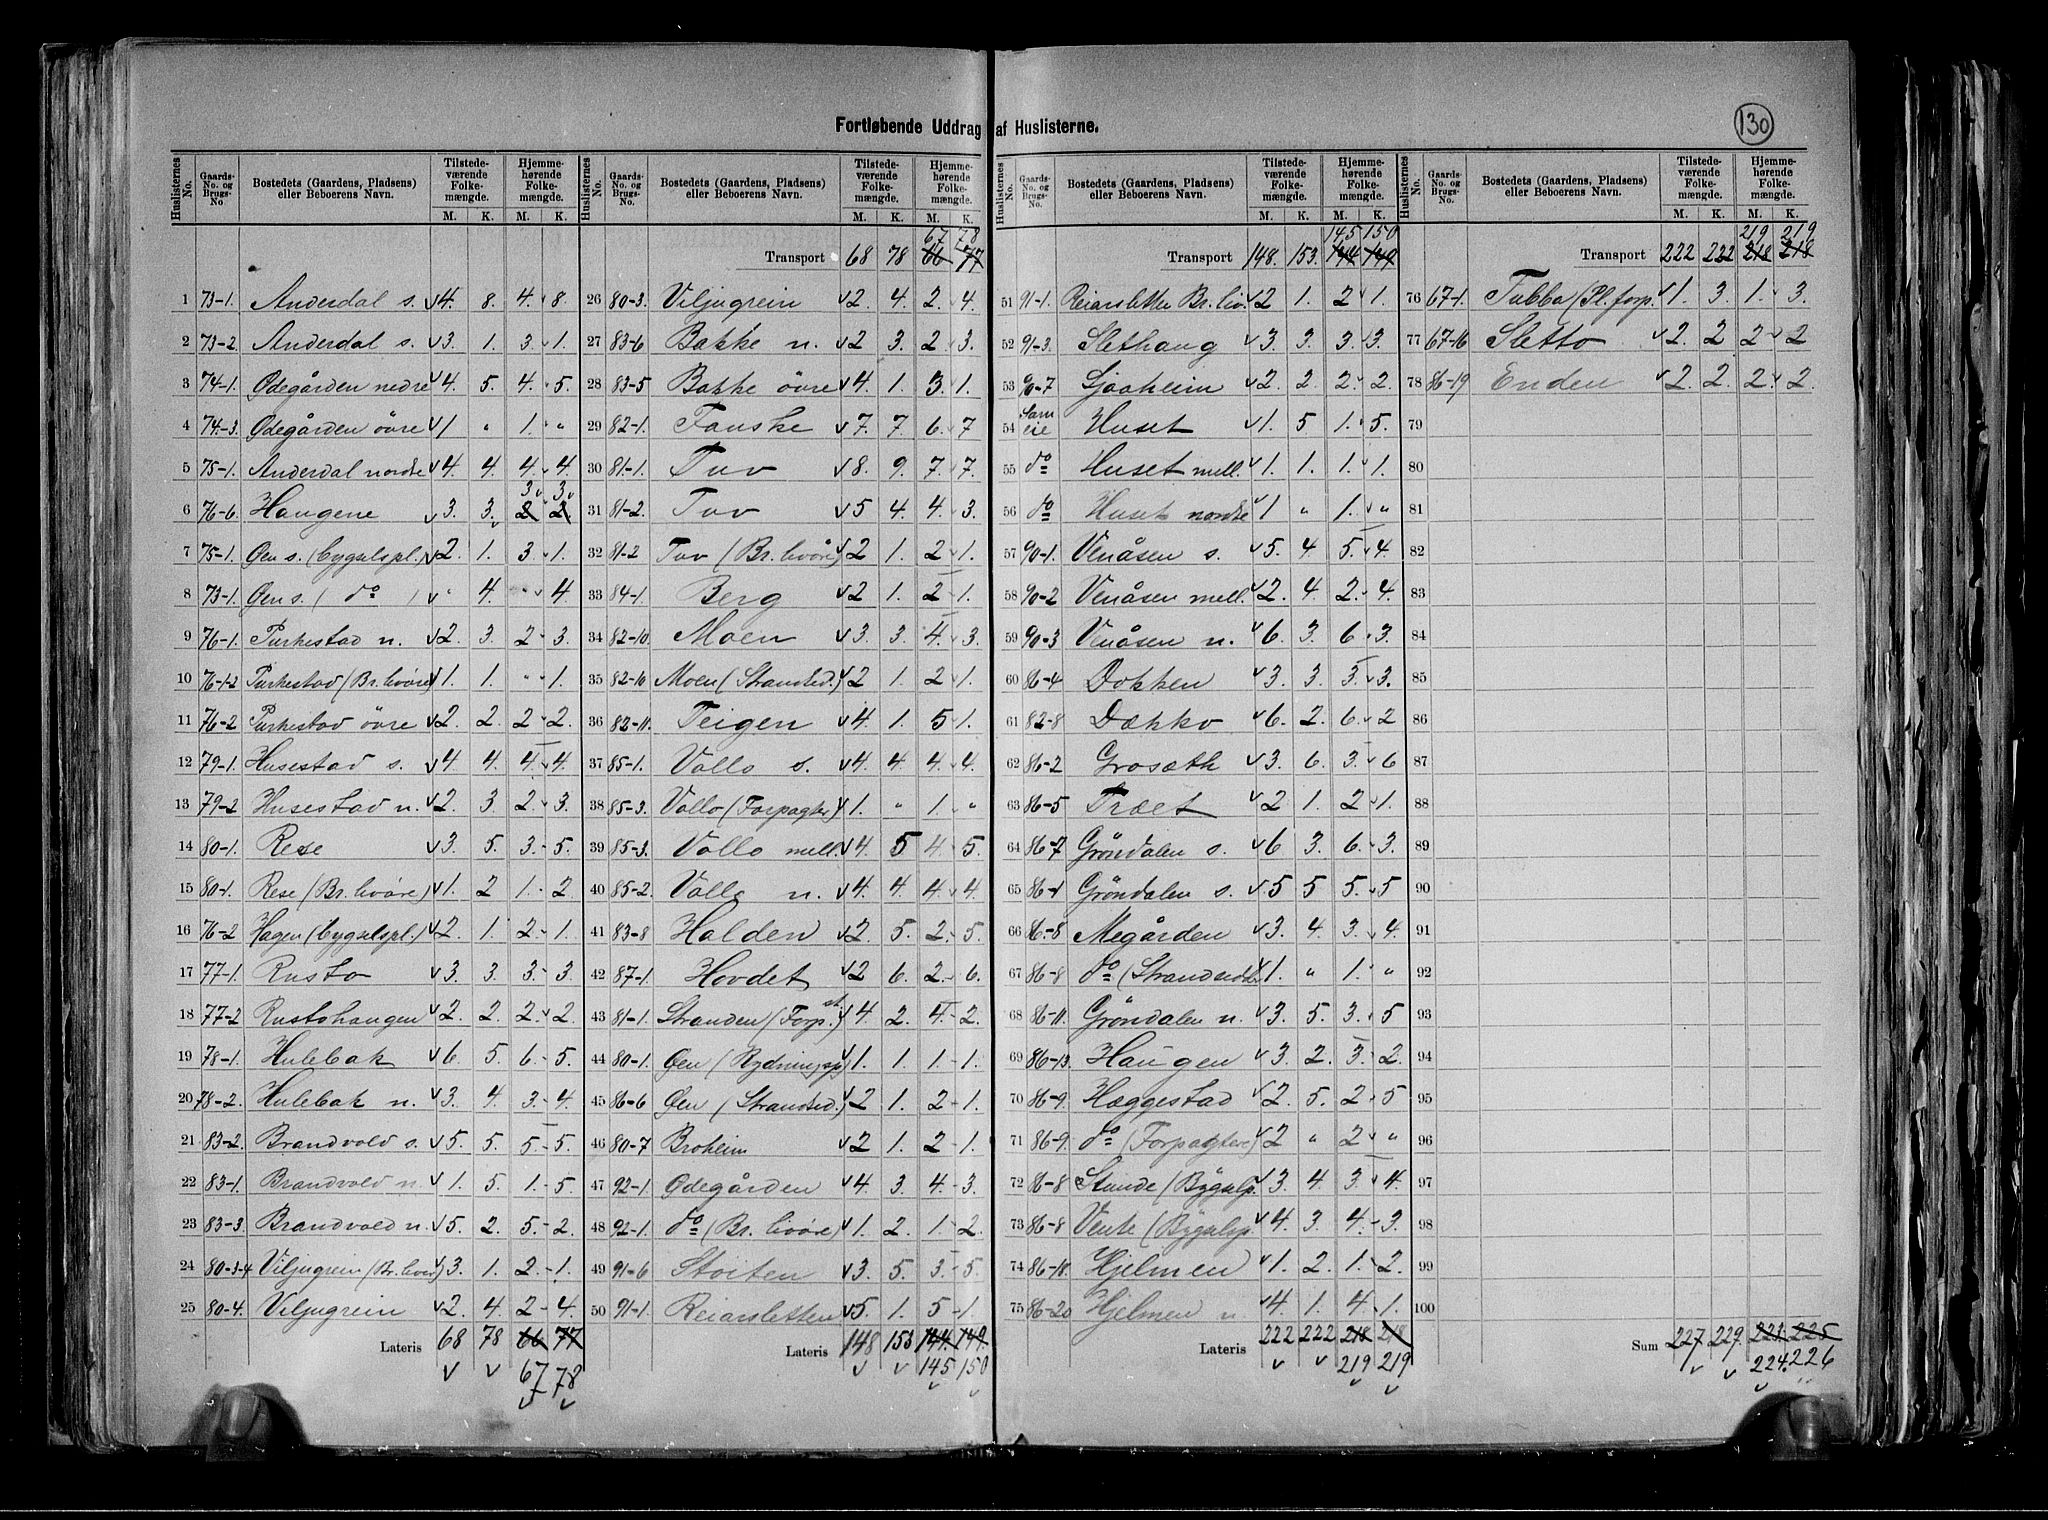 Fortløbende Uddrag af Huslisterne.
130
Huslisternes No. Gaards-No. og Brugs-No. Bostedets (Gaardens, Pladsens) eller Beboerens Navn. Tilstedeværende Folkemængde. M. K. Hjemmehørende Folkemængde. M. K.
1 73-1. Anderdal s. 4. 8. 4. 8.
2 73-2. Anderdal s. 3. 1. 3. 1.
3 74-1. Ødegården nedre 4. 5. 4. 5.
4 74-3. Ødegården övre 1 " 1. "
5 75-1. Anderdal nordre 4. 4. 4. 4.
3 3
6 76-6. Haugene 3. 3. 2 2
7 75-1. Øen s. (bygselspl.) 2. 1. 3. 1.
8 73-1. Øen s. ( do ) " 4. " 4
9 76-1. Purkestad n. 2. 3. 2 3.
10 76-1-2 Purkestad (Br. livöre) 1. 1. " 1.
11 76-2 Purkestad övre 2. 2. 2 2.
12 79-1. Husestad s. 4. 4. 4. 4.
13 79-2 Husestad n. 2. 3 2. 3.
14 80-1. Rese 3. 5. 3. 5.
15 80-1. Rese (Br. livöre) 1. 2 1. 2
16 76-2 Hagen (bygselspl.) 2. 1. 2 1.
17 77-1. Rusto 3. 3. 3. 3.
18 77-2 Rustohaugen 2. 2. 2. 2.
19 78-1. Hulebak 6. 5. 6. 5.
20 78-2. Hulebak n. 3. 4. 3. 4.
21 83-2. Brandvold s. 5. 5. 5 5.
22 83-1. Brandvold n. 1. 5. 1. 5.
23 83-3. Brandvold n. 5. 2. 5. 2.
24 80-3-4 Viljugrein (Br. livör) 3. 1. 2. 1.
25 80-4. Viljugrein 2. 4. 2 4.
Lateris 68 78 66 77
67 78
Huslisternes No. Gaards-No. og Brugs-No. Bostedets (Gaardens, Pladsens) eller Beboerens Navn. Tilstedeværende Folkemængde. M. K. Hjemmehørende Folkemængde. M. K.
67 78
Transport 68 78 66 77
26 80-3. Viljugrein 2. 4. 2. 4.
27 83-6 Bakke n. 2 3. 2 3.
28 83-5 Bakke övre 4. 1. 3 1.
29 82-1. Fauske 7. 7. 6. 7
30 81-1. Tuv 8. 9. 7. 7.
31 81-2. Tuv 5 4. 4. 3.
32 81-2 Tuv (Br. livöre) 2 1. 2 1.
33 84-1. Berg 2 1. 2 1.
34 82-10. Moen 3. 3. 4. 3.
35 82-10 Moen (Strandsid.) 2 1. 2 1.
36 82-11. Teigen 4. 1. 5 1.
37 85-1. Vallo s. 4. 4 4. 4.
38 85-3. Vallo (Forpagter) 1. " 1 "
39 85-3. Vallo mell. 4. 5 4. 5.
40 85-2. Vallo n. 4. 4. 4. 4.
41 83-8 Halden 2. 5. 2. 5.
42 87-1. Hovdet 2 6. 2. 6.
43 81-1. Stranden (Forp.st.) 4 2. 4. 2.
44 80-1. Øen (Rydningspl) 1. 1. 1. 1.
45 86-6 Øen (Strandsid.) 2 1. 2 1.
46 80-7 Broheim 2 1. 2 1.
47 92-1. Ødegården 4. 3. 4. 3.
48 92-1. do (Br. livöre) 1. 2. 1. 2.
49 91-6 Stoiten 3. 5. 3. 5.
50 91-1. Reiarsletten 5. 1. 5 1.
Lateris 148 153 144. 149.
145 150
Huslisternes No. Gaards-No. og Brugs-No. Bostedets (Gaardens, Pladsens) eller Beboerens Navn. Tilstedeværende Folkemængde. M. K. Hjemmehørende Folkemængde. M. K.
145 150
Transport 148. 153. 144 149
51 91-1. Reiarsletten Br. liv. 2 1. 2 1.
52 91-3. Slethaug 3. 3. 3. 3.
53 90-7 Sjaaheim 2. 2. 2. 2.
54 Sameie Huset 1. 5 1. 5.
55 do Huset mell. 1. 1. 1. 1.
56 do Huset nordre 1 " 1. "
57 90-1. Venåsen s. 5. 4 5. 4.
58 90-2 Venåsen mell. 2. 4 2. 4.
59 90-3 Venåsen n. 6. 3. 6 3.
60 86-4 Dokken 3. 3. 3. 3.
61 82-8 Dækko 6. 2. 6. 2
62 86-2 Grosæth 3. 6. 3. 6
63 86-5 Træet 2 1. 2 1.
64 86-7 Gröndalen s. 6 3. 6. 3.
65 86-1 Gröndalen s. 5 5 5. 5
66 86-8 Megården 3. 4. 3. 4.
67 86-8 do (Strandsidder 1. " 1. "
68 86-11. Gröndalen n. 3. 5. 3. 5
69 86-13. Haugen 3. 2. 3. 2.
70 86-9. Haggestad 2. 5. 2 5
71 86-9. do (Forpagtere) 2 " 2 "
72 86-8 Stunde (Bygselp. 3. 4 3. 4.
73 86-8 Vente (Bygselsp. 4. 3. 4. 3.
74 86-18. Hjelmen 1. 2. 1. 2.
75 86-20 Hjelmen n. 4. 1. 4. 1.
Lateris 222 222 218 218
219 219
Huslisternes No. Gaards-No. og Brugs-No. Bostedets (Gaardens, Pladsens) eller Beboerens Navn. Tilstedeværende Folkemængde. M. K. Hjemmehørende Folkemængde. M. K.
219 219
Transport 222 222 218 218
76 67-1. Tubba (Pl. forp. 1. 3. 1. 3.
77 67-16 Sletto 2. 2 2 2
78 86-19 Enden 2. 2. 2 2.
79
80
81
82
83
84
85
86
87
88
89
90
91
92
93
94
95
96
97
98
99
100
Sum 227 229. 223. 225
224. 226